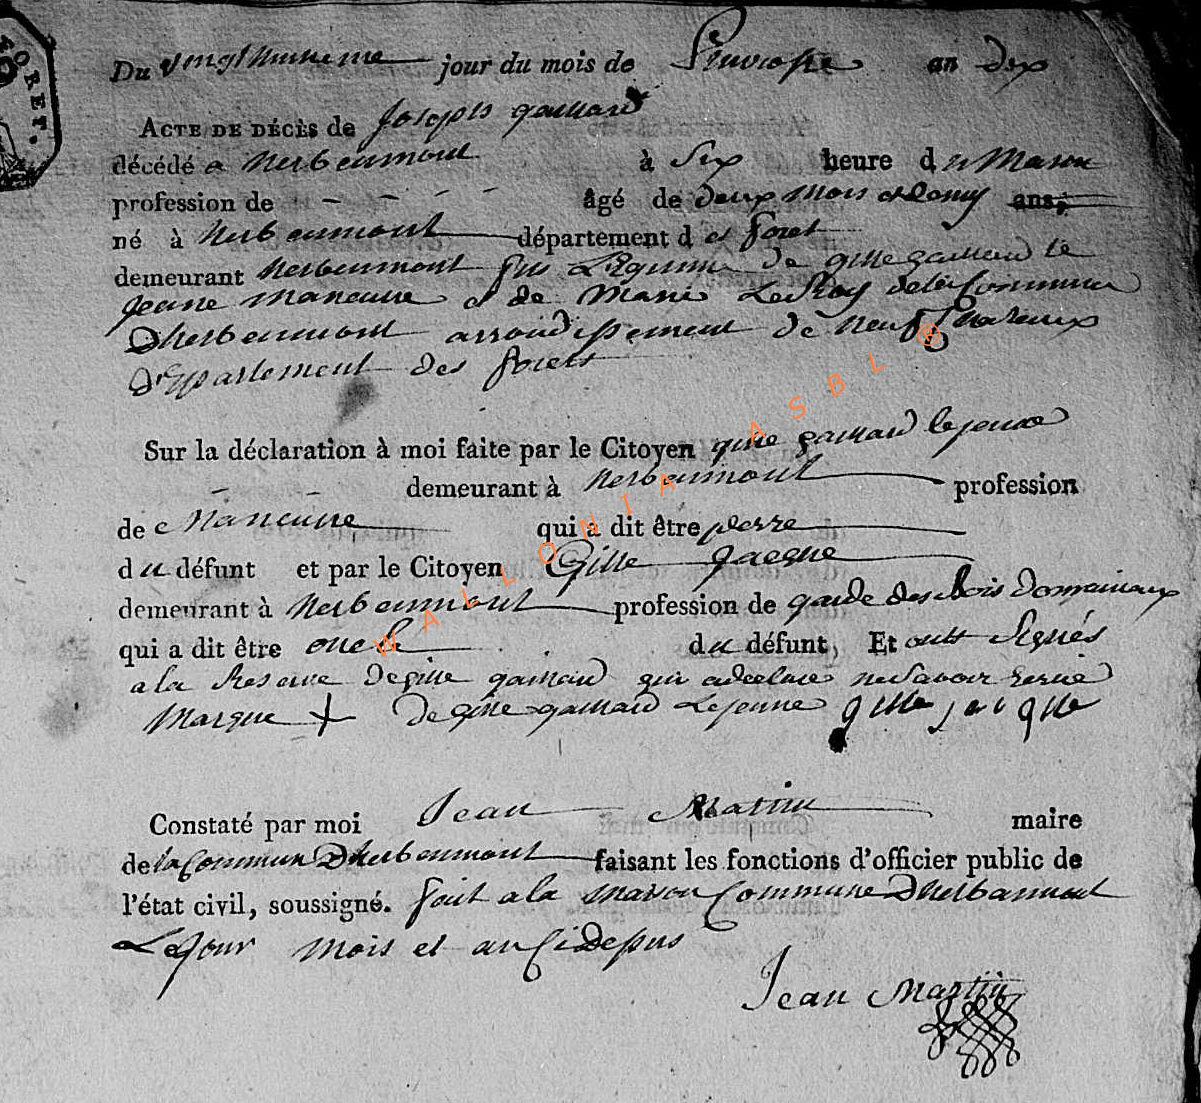 FORET.
Du vingthuitieme jour du mois de Pluviose an dix
ACTE DE DÉCÈS de Joseph gaillard
décédé a herbeumont à Six heure du Matin
profession de - - - - âgé de deux Mois et demy ans;
né à herbeumont département des foret
demeurant herbeumont fils Légitime de gille gaillard le
Jeune Maneuvre et de Marie LeRoy de la Commune
Dherbeumont arrondissement de neufchateaux
Département des forets
Sur la déclaration à moi faite par le Citoyen gille gaillard le jeune
- - demeurant à herbeumont profession
de Maneuvre qui a dit être perre
du défunt et par le Citoyen Gille Jacque
demeurant à herbeumont profession de garde des bois Domainiaux
qui a dit être oncle du défunt, Et onts Signés
a la Reserve de gille gaillard qui a declaré ne savoir
Marque + De gille gaillard Le jeunne gille jacque
Constaté par moi Jean Martin maire
de la Commune Dherbeumont faisant les fonctions d'officier public de
l'état civil, soussigné. fait a la Maison Commune Dherbeumont
Le Jour Mois et an Cidesus
Jean Martin
WALLONIA ASBL ©